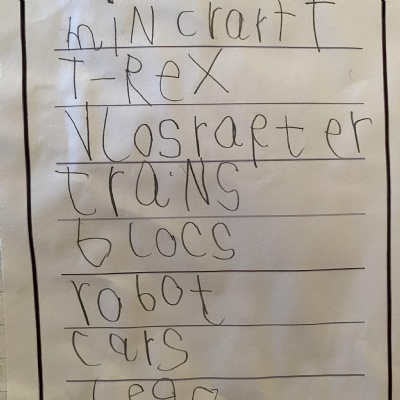 miNcraft
T-Rex
Vlosrapter
traiNs
blocs
robot
cars
lego